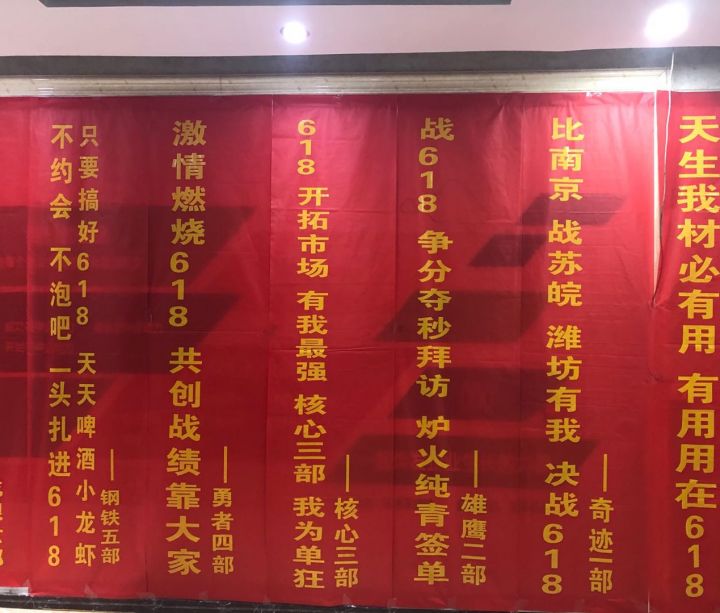 不约会 不泡吧 一头扎进618
只要搞好618 天天啤酒小龙虾
——钢铁五部
激情燃烧618 共创战绩靠大家
——勇者四部
618 开拓市场 有我最强 核心三部 我为单狂
——核心三部
战618 争分夺秒拜访 炉火纯青签单
——雄鹰二部
比南京 战苏皖 潍坊有我 决战618
——奇迹一部
天生我材必有用 有用用在618